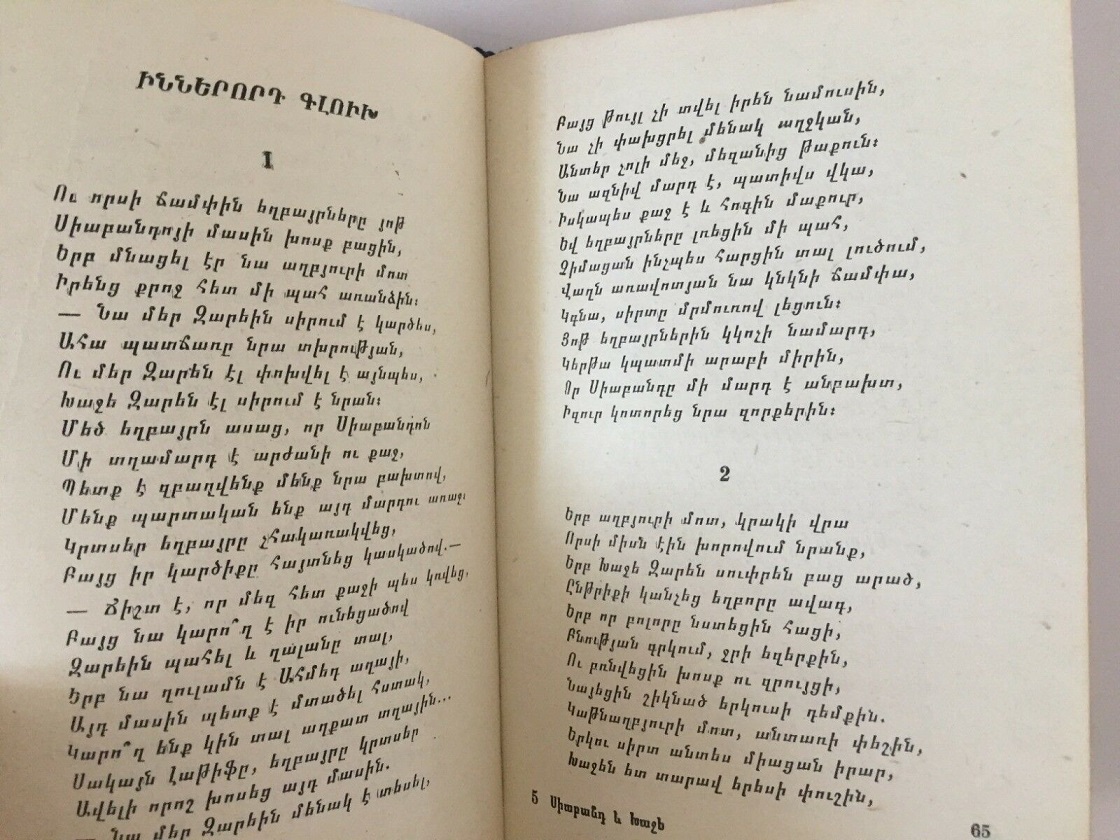 ԻՆՆԵՐՈՐԴ ԳԼՈՒԽ
1
Ու որսի ճամփին եղբայրները յոթ
Սիաբանդոյի մասին խոսք բացին,
Երբ մնացել էր նա աղբյուրի մոտ
Իրենց քրոջ հետ մի պահ առանձին։
— Նա մեր Զարեին սիրում է կարծես,
Ահա պատճառը նրա տխրության,
Ու մեր Զարեն էլ փոխվել է այնպես,
Խաջե Զարեն էլ սիրում է նրան։
Մեծ եղբայրն ասաց, որ Սիաբանդոն
Մի տղամարդ է արժանի ու քաջ,
Պետք է զբաղվենք մենք նրա բախտով,
Մենք պարտական ենք այդ մարդու առաջ։
Կրտսեր եղբայրը չհակառակվեց,
Բայց իր կարծիքը հայտնեց կասկածով.—
— Ճիշտ է, որ մեզ հետ քաջի պես կովեց,
Բայց նա կարո՞ղ է իր ունեցածով
Զարեին պահել և ղալանը տալ,
Երբ նա ղուլամն է Ահմեդ աղայի,
Այդ մասին պետք է մտածել հստակ,
Կարո՞ղ ենք կին տալ աղքատ տղային...
Սակայն Լաթիֆը, եղբայրը կրտսեր
Ավելի որոշ խոսեց այդ մասին.
— Նա մեր Զարեին մենակ է տեսել,
Բայց թույլ չի տվել իրեն նամուսին,
Նա չի փախցրել մենակ աղջկան,
Անտեր չոլի մեջ, մեզանից թաքուն։
Նա ազնիվ մարդ է, պատիվս վկա,
Իսկապես քաջ է և հոգին մաքուր,
Եվ եղբայրները լռեցին մի պահ,
Չիմացան ինչպես հարցին տալ լուծում,
Վաղն առավոտյան նա կնկնի ճամփա,
Կգնա, սիրտը մրմուռով լեցուն։
Յոթ եղբայրներին կկոչի նամարդ,
Կերթա կպատմի արաբի միրին,
Որ Սիաբանդը մի մարդ է անբախտ,
Իզուր կոտորեց նրա զորքերին։
2
Երբ աղբյուրի մոտ, կրակի վրա
Որսի միսն էին խորովում նրանք,
Երբ Խաջե Զարեն սուփրեն բաց արած,
Ընթրիքի կանչեց եղբորը ավագ,
Երբ որ բոլորը նստեցին հացի,
Բնության գրկում, ջրի եզերքին,
Ու բռնվեցին խոսք ու զրույցի,
Նայեցին շիկնած երկուսի դեմքին.
Կաթնաղբյուրի մոտ, անտառի փեշին,
Երկու սիրտ անտես միացան իրար,
Խաջեն ետ տարավ երեսի փուշին,
5 Սիաբանդ և Խաջե
65